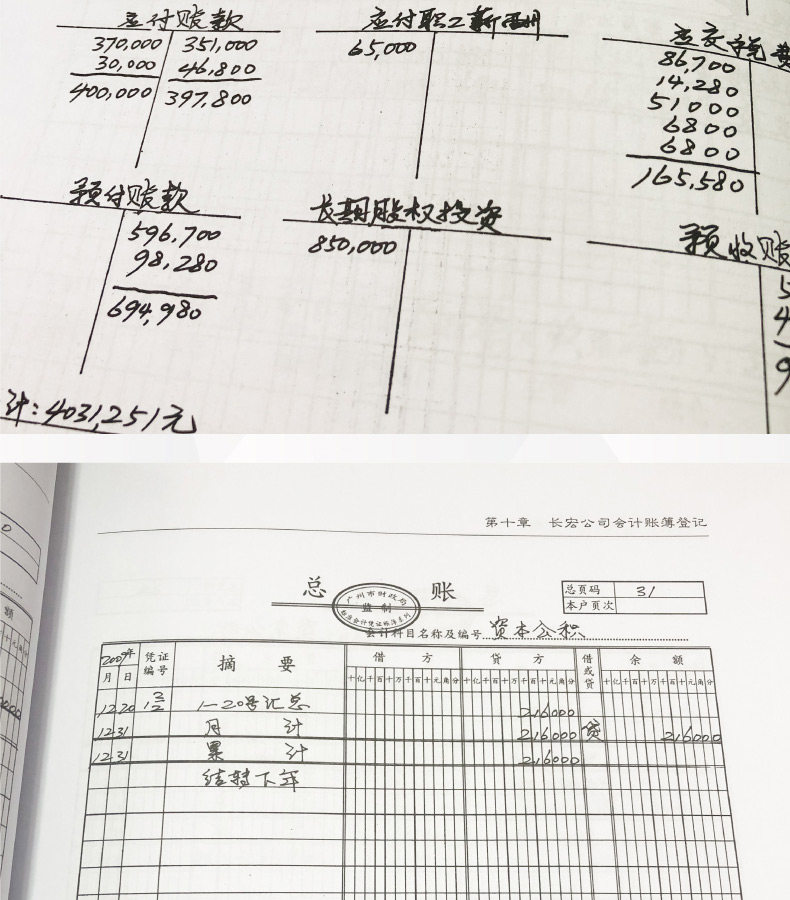 应付账款
370,000 351,000
30,000 46,800
400,000 397,800
应付职工薪酬
65,000
应交税费
86,700
14,280
51000
6800
6800
165,580
预付账款
596,700
98,280
694,980
长期股权投资
850,000
预收账
5
4
9
计:4031,251元
第十章 长宏公司会计账簿登记
总 账
广州市财政局
监制
总页码 31
本户页次
会计科目名称及编号 资本公积
2009年 凭证编号 摘 要 借 方 贷 方 借或贷 余 额
月 日 十亿千百十万千百十元角分 十亿千百十万千百十元角分 十亿千百十万千百十元角分
12 20 1-20号汇总 216000
12 31 月 计 216000 贷 216000
12 31 累 计 216000
结转下年